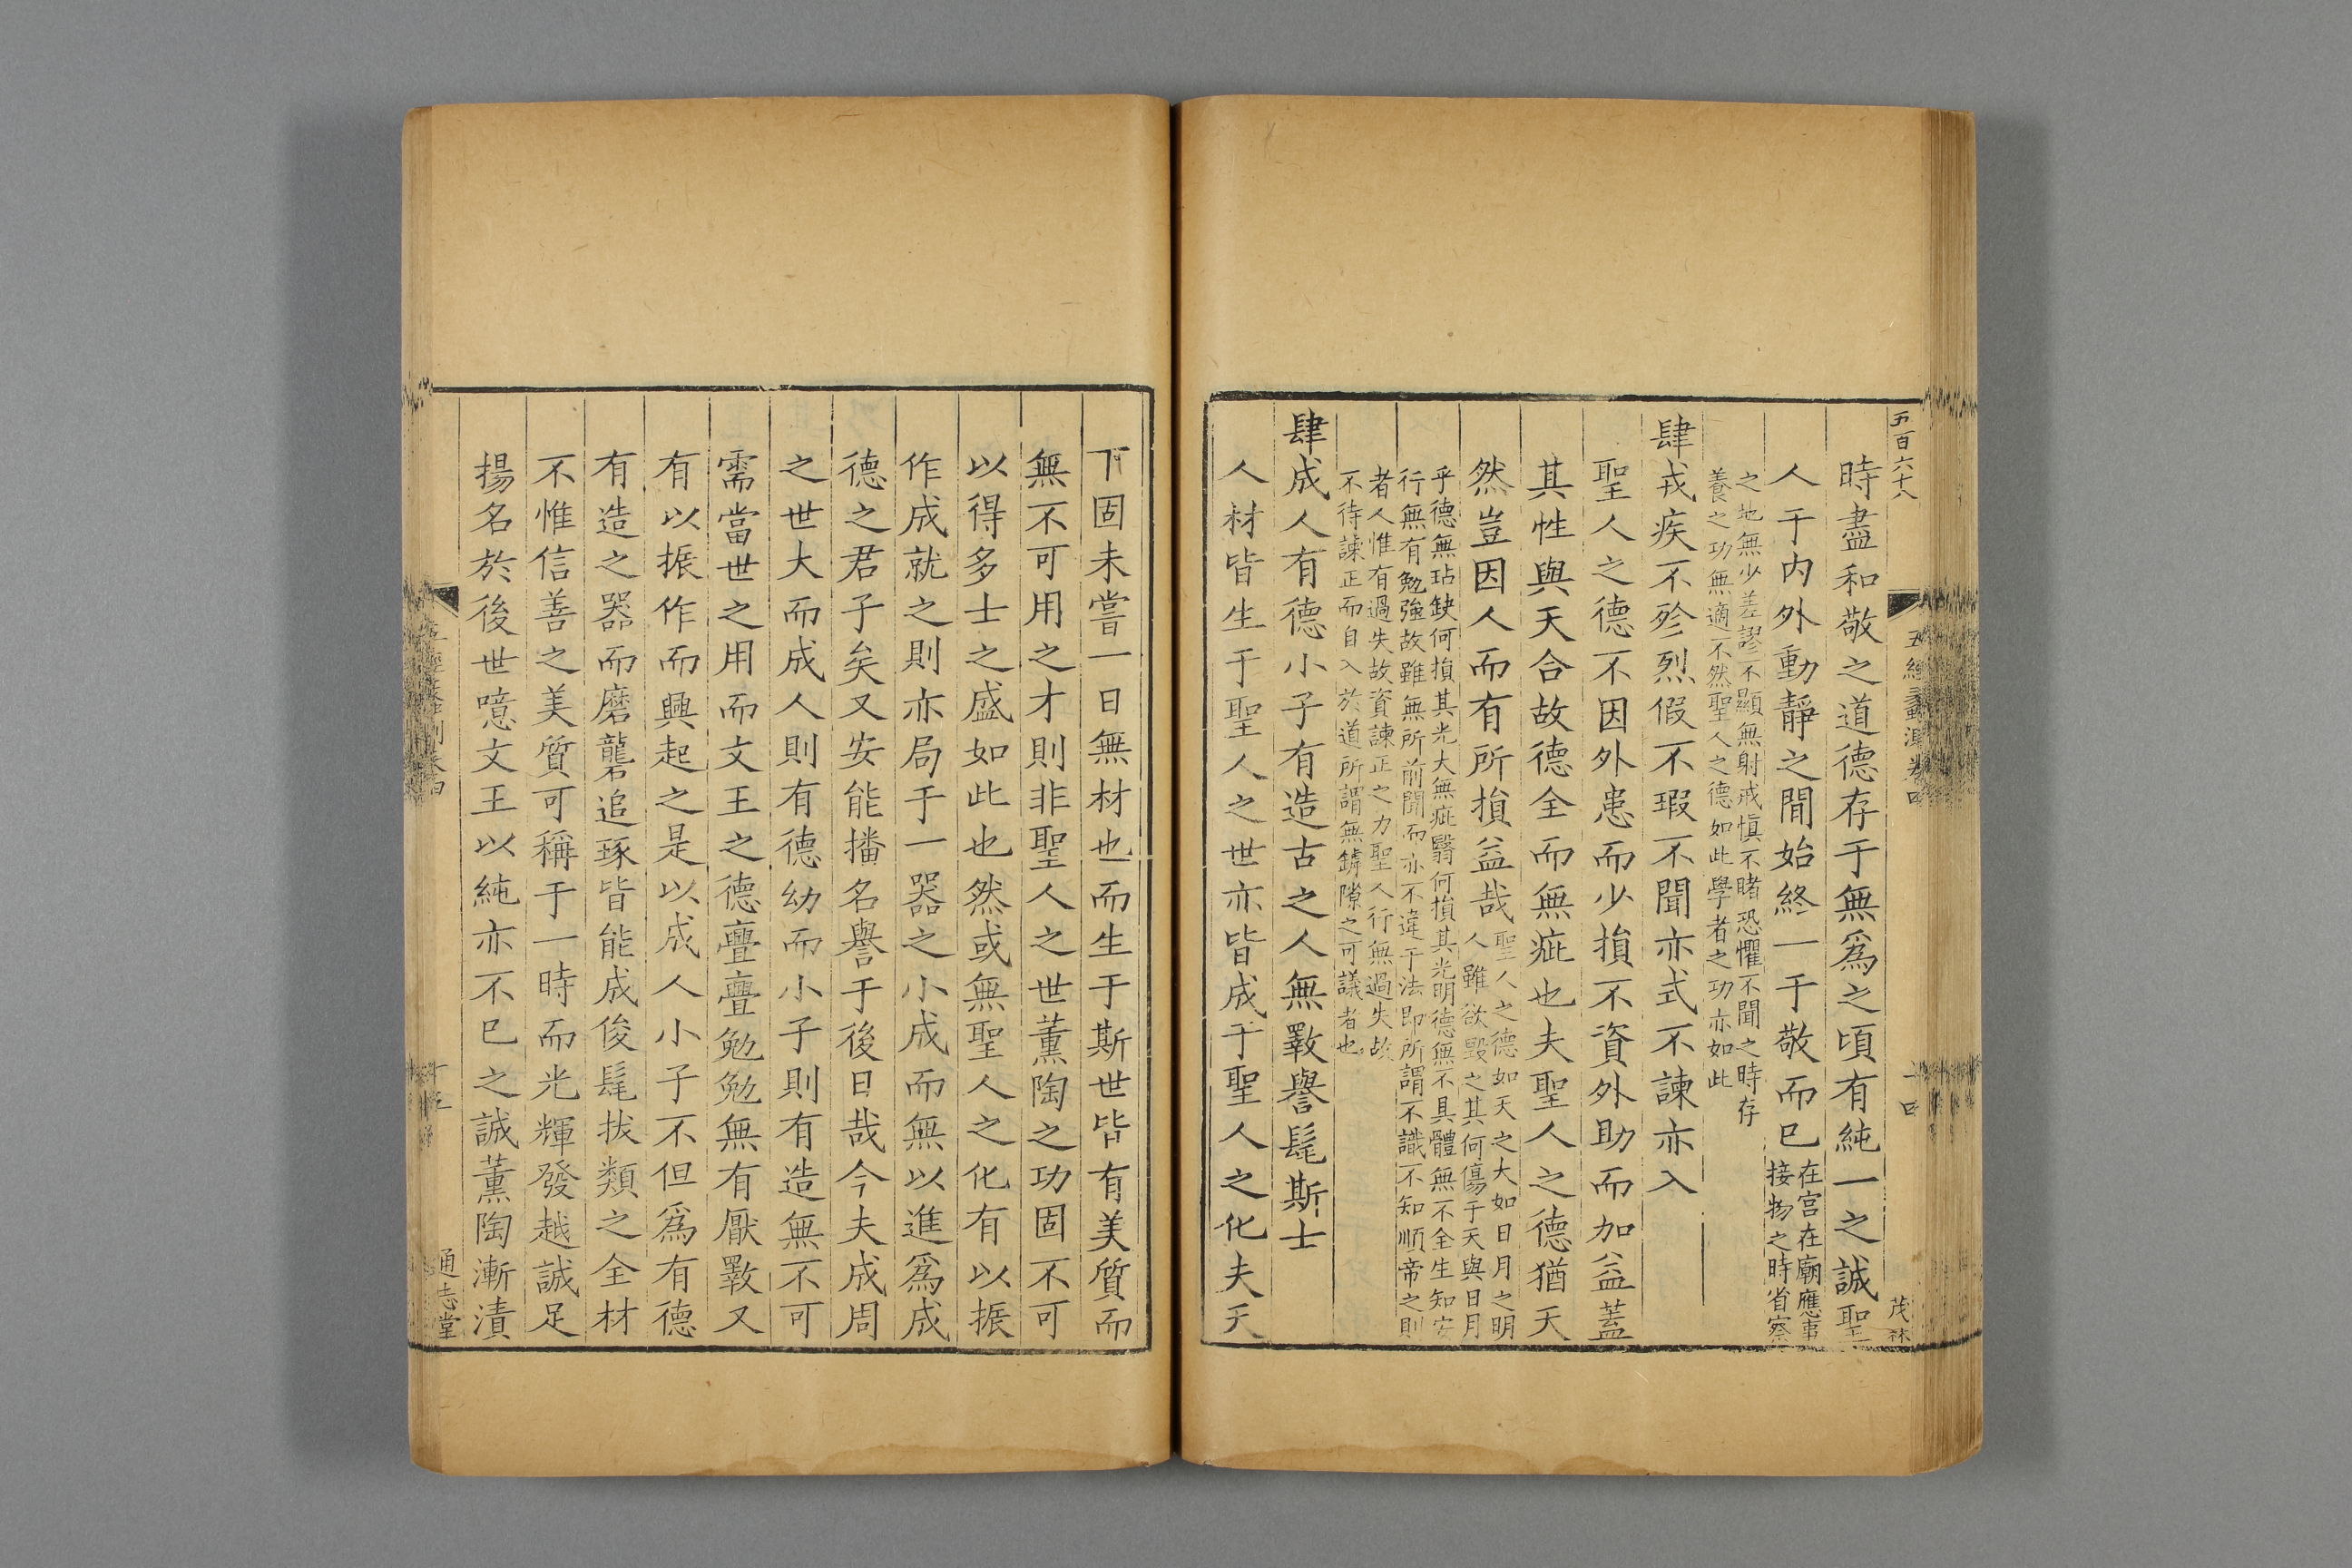 五百六十八
五經蠡測卷四
十四
茂林
時盡和敬之道德存于無爲之頃有純一之誠聖
人于内外動靜之間始終一于敬而已
在宫在廟應事
接物之時省察
之地無少差謬不顯無射戒慎不睹恐懼不聞之時存
養之功無適不然聖人之德如此學者之功亦如此
肆戎疾不殄烈假不瑕不聞亦式不諫亦入
聖人之德不因外患而少損不資外助而加益蓋
其性與天合故德全而無疵也夫聖人之德猶天
然豈因人而有所損益哉
聖人之德如天之大如日月之明
人雖欲毀之其何傷于天與日月
乎德無玷缺何損其光大無疵翳何損其光明德無不具體無不全生知安
行無有勉強故雖無所前聞而亦不違于法即所謂不識不知順帝之則
者人惟有過失故資諫正之力聖人行無過失故
不待諫正而自入於道所謂無罅隙之可議者也
肆成人有德小子有造古之人無斁譽髦斯士
人材皆生于聖人之世亦皆成于聖人之化夫天
下固未嘗一日無材也而生于斯世皆有美質而
無不可用之才則非聖人之世薰陶之功固不可
以得多士之盛如此也然或無聖人之化有以振
作成就之則亦局于一器之小成而無以進爲成
德之君子矣又安能播名譽于後日哉今夫成周
之世大而成人則有德幼而小子則有造無不可
需當世之用而文王之德亹亹勉勉無有厭斁又
有以振作而興起之是以成人小子不但爲有德
有造之器而磨礱追琢皆能成俊髦拔類之全材
不惟信善之美質可稱于一時而光輝發越誠足
揚名於後世噫文王以純亦不已之誠薰陶漸漬
十五
通志堂